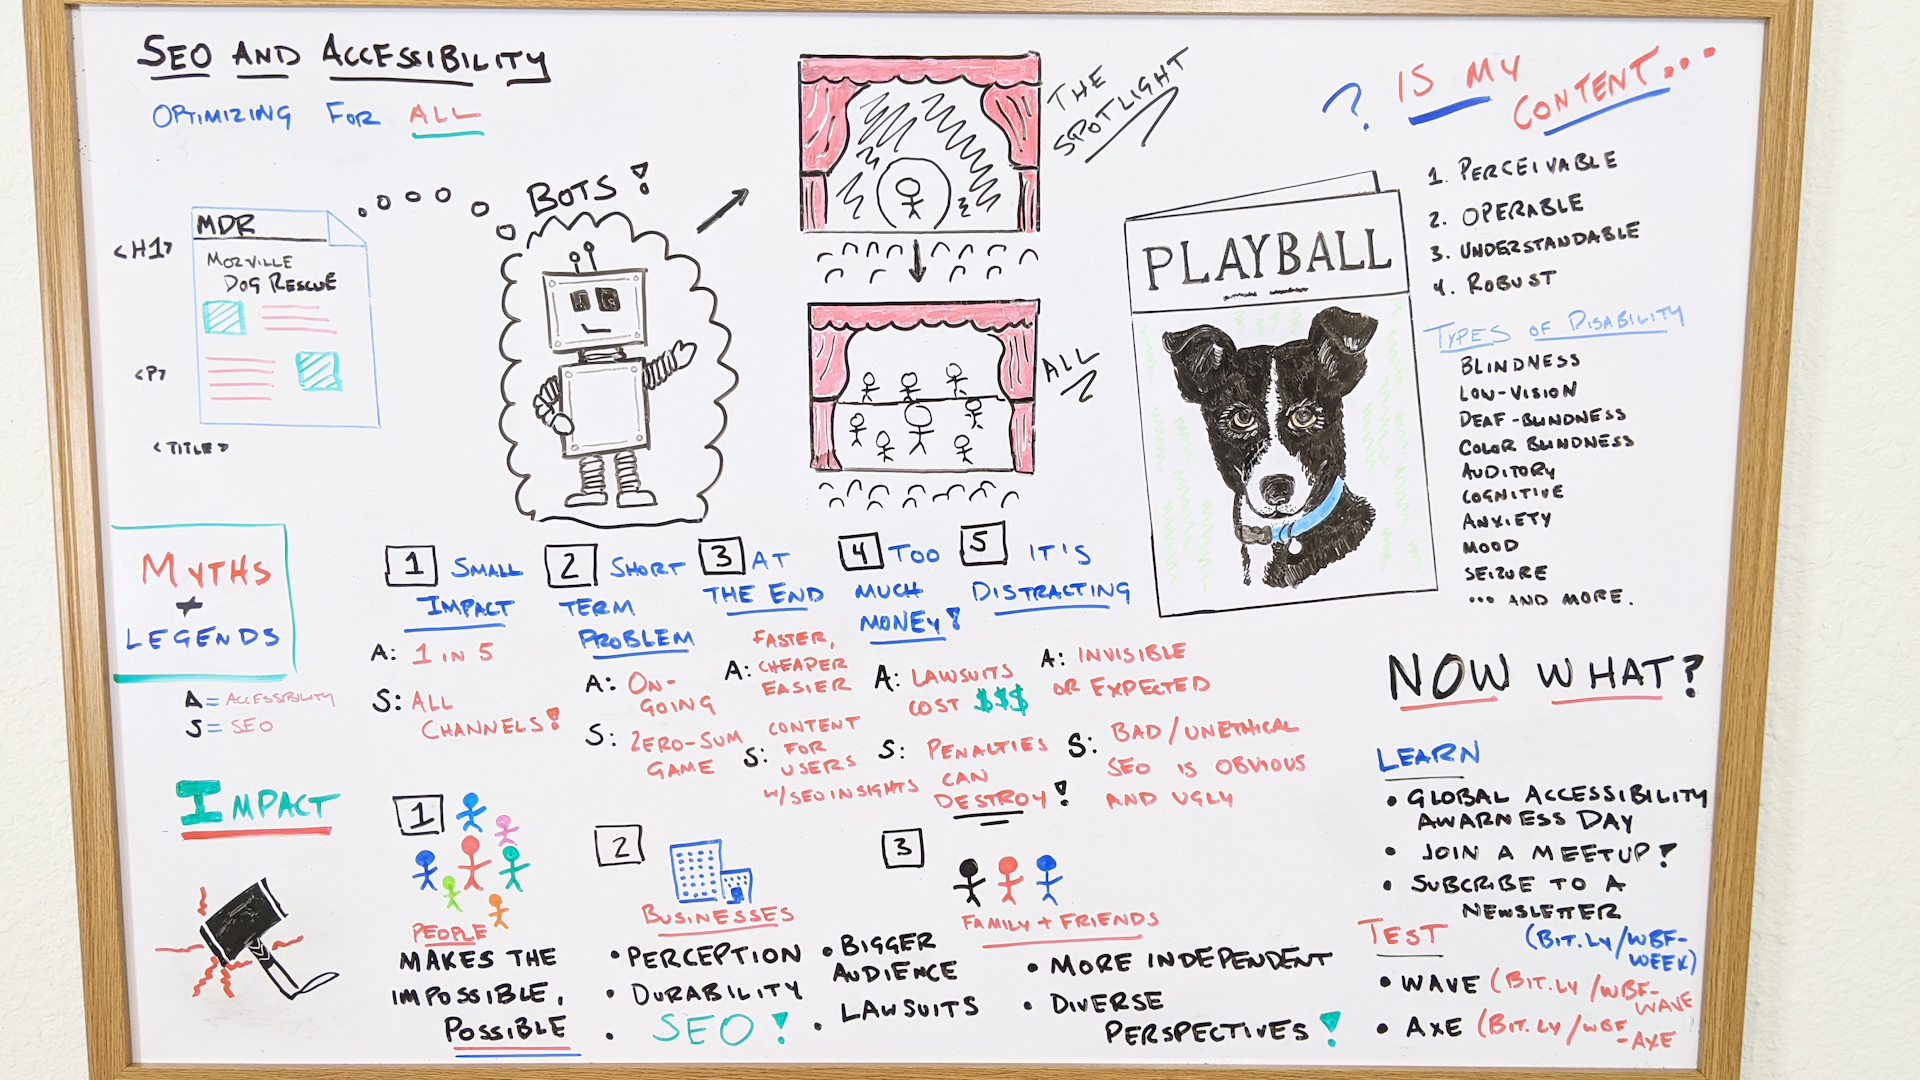 SEO AND ACCESSIBILITY
OPTIMIZING FOR ALL
BOTS!
<H1>
MDR
MORVILLE
DOG RESCUE
<P>
<TITLE>
THE
SPOTLIGHT
ALL
PLAYBALL
? IS MY
CONTENT...
1. PERCEIVABLE
2. OPERABLE
3. UNDERSTANDABLE
4. ROBUST
TYPES OF DISABILITY
BLINDNESS
LOW-VISION
DEAF-BLINDNESS
COLOR BLINDNESS
AUDITORY
COGNITIVE
ANXIETY
MOOD
SEIZURE
... AND MORE.
MYTHS
≠
LEGENDS
A = ACCESSIBILITY
S = SEO
1 SMALL
IMPACT
A: 1 IN 5
S: ALL
CHANNELS!
2 SHORT
TERM
PROBLEM
A: ON-
GOING
S: ZERO-SUM
GAME
3 AT
THE END
FASTER,
A: CHEAPER
EASIER
CONTENT
S: FOR
USERS
W/SEO INSIGHTS
4 TOO
MUCH
MONEY!
A: LAWSUITS
COST $$$
S: PENALTIES
CAN
DESTROY!
5 IT'S
DISTRACTING
A: INVISIBLE
OR EXPECTED
S: BAD/UNETHICAL
SEO IS OBVIOUS
AND UGLY
IMPACT
1
PEOPLE
MAKES THE
IMPOSSIBLE,
POSSIBLE
2
BUSINESSES
• PERCEPTION
• DURABILITY
• SEO!
• BIGGER
AUDIENCE
• LAWSUITS
3
FAMILY + FRIENDS
• MORE INDEPENDENT
• DIVERSE
PERSPECTIVES!
NOW WHAT?
LEARN
• GLOBAL ACCESSIBILITY
AWARNESS DAY
• JOIN A MEETUP!
• SUBCRIBE TO A
NEWSLETTER
(BIT.LY/WBF-
WEEK)
TEST
• WAVE (BIT.LY/WBF-
WAVE
• AXE (BIT.LY/WBF
-AXE